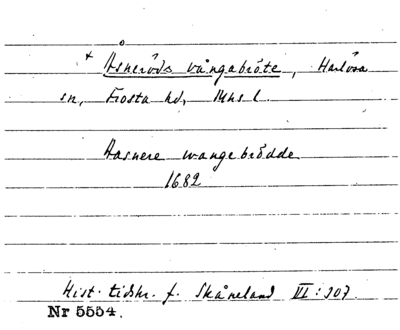 + Åsneröds vångabröte, Harlösa
sn, Frosta hd, Mhs l.
Aasnere wangebrödde
1682
Hist. tidskr. f. Skåneland VI: 307
Nr 5554.